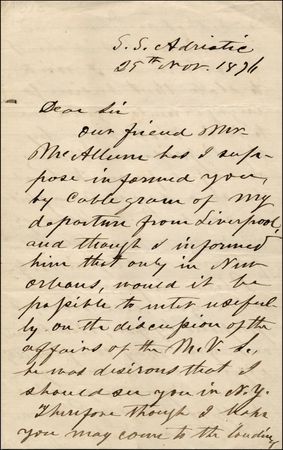 S.S. Adriatic
29th Nov. 1876
Dear Sir
Our friend Mr
McAllum has I sup-
pose informed you
by Cablegram of my
departure from Liverpool,
and though I informed
him that only in New
Orleans, would it be
possible to enter useful
ly on the discussion of the
affairs of the M.V. Co,
he was disirous that I
should see you in N.Y.
Therefore though I hope
you may come to the landing